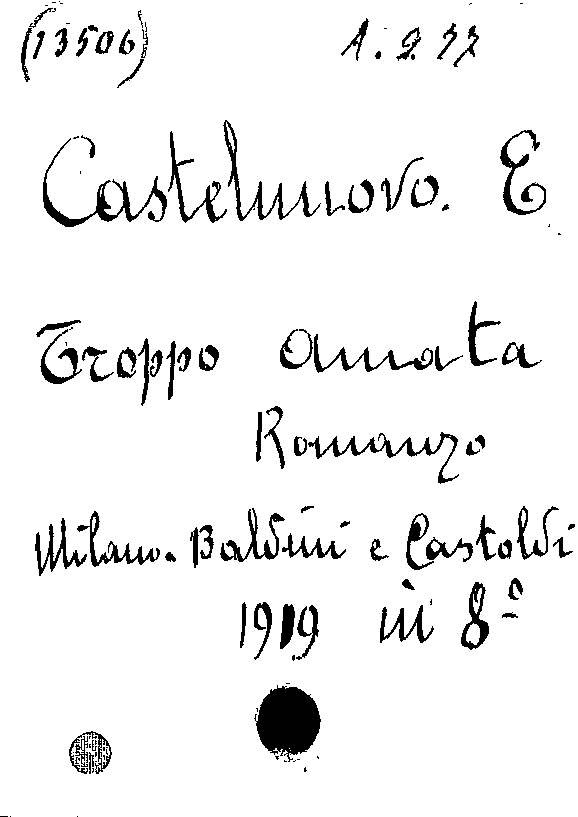 (13506) 1.2.77
Castelnuovo. E
Troppo amata
Romanzo
Milano. Baldini e Castoldi
1919 in 8º